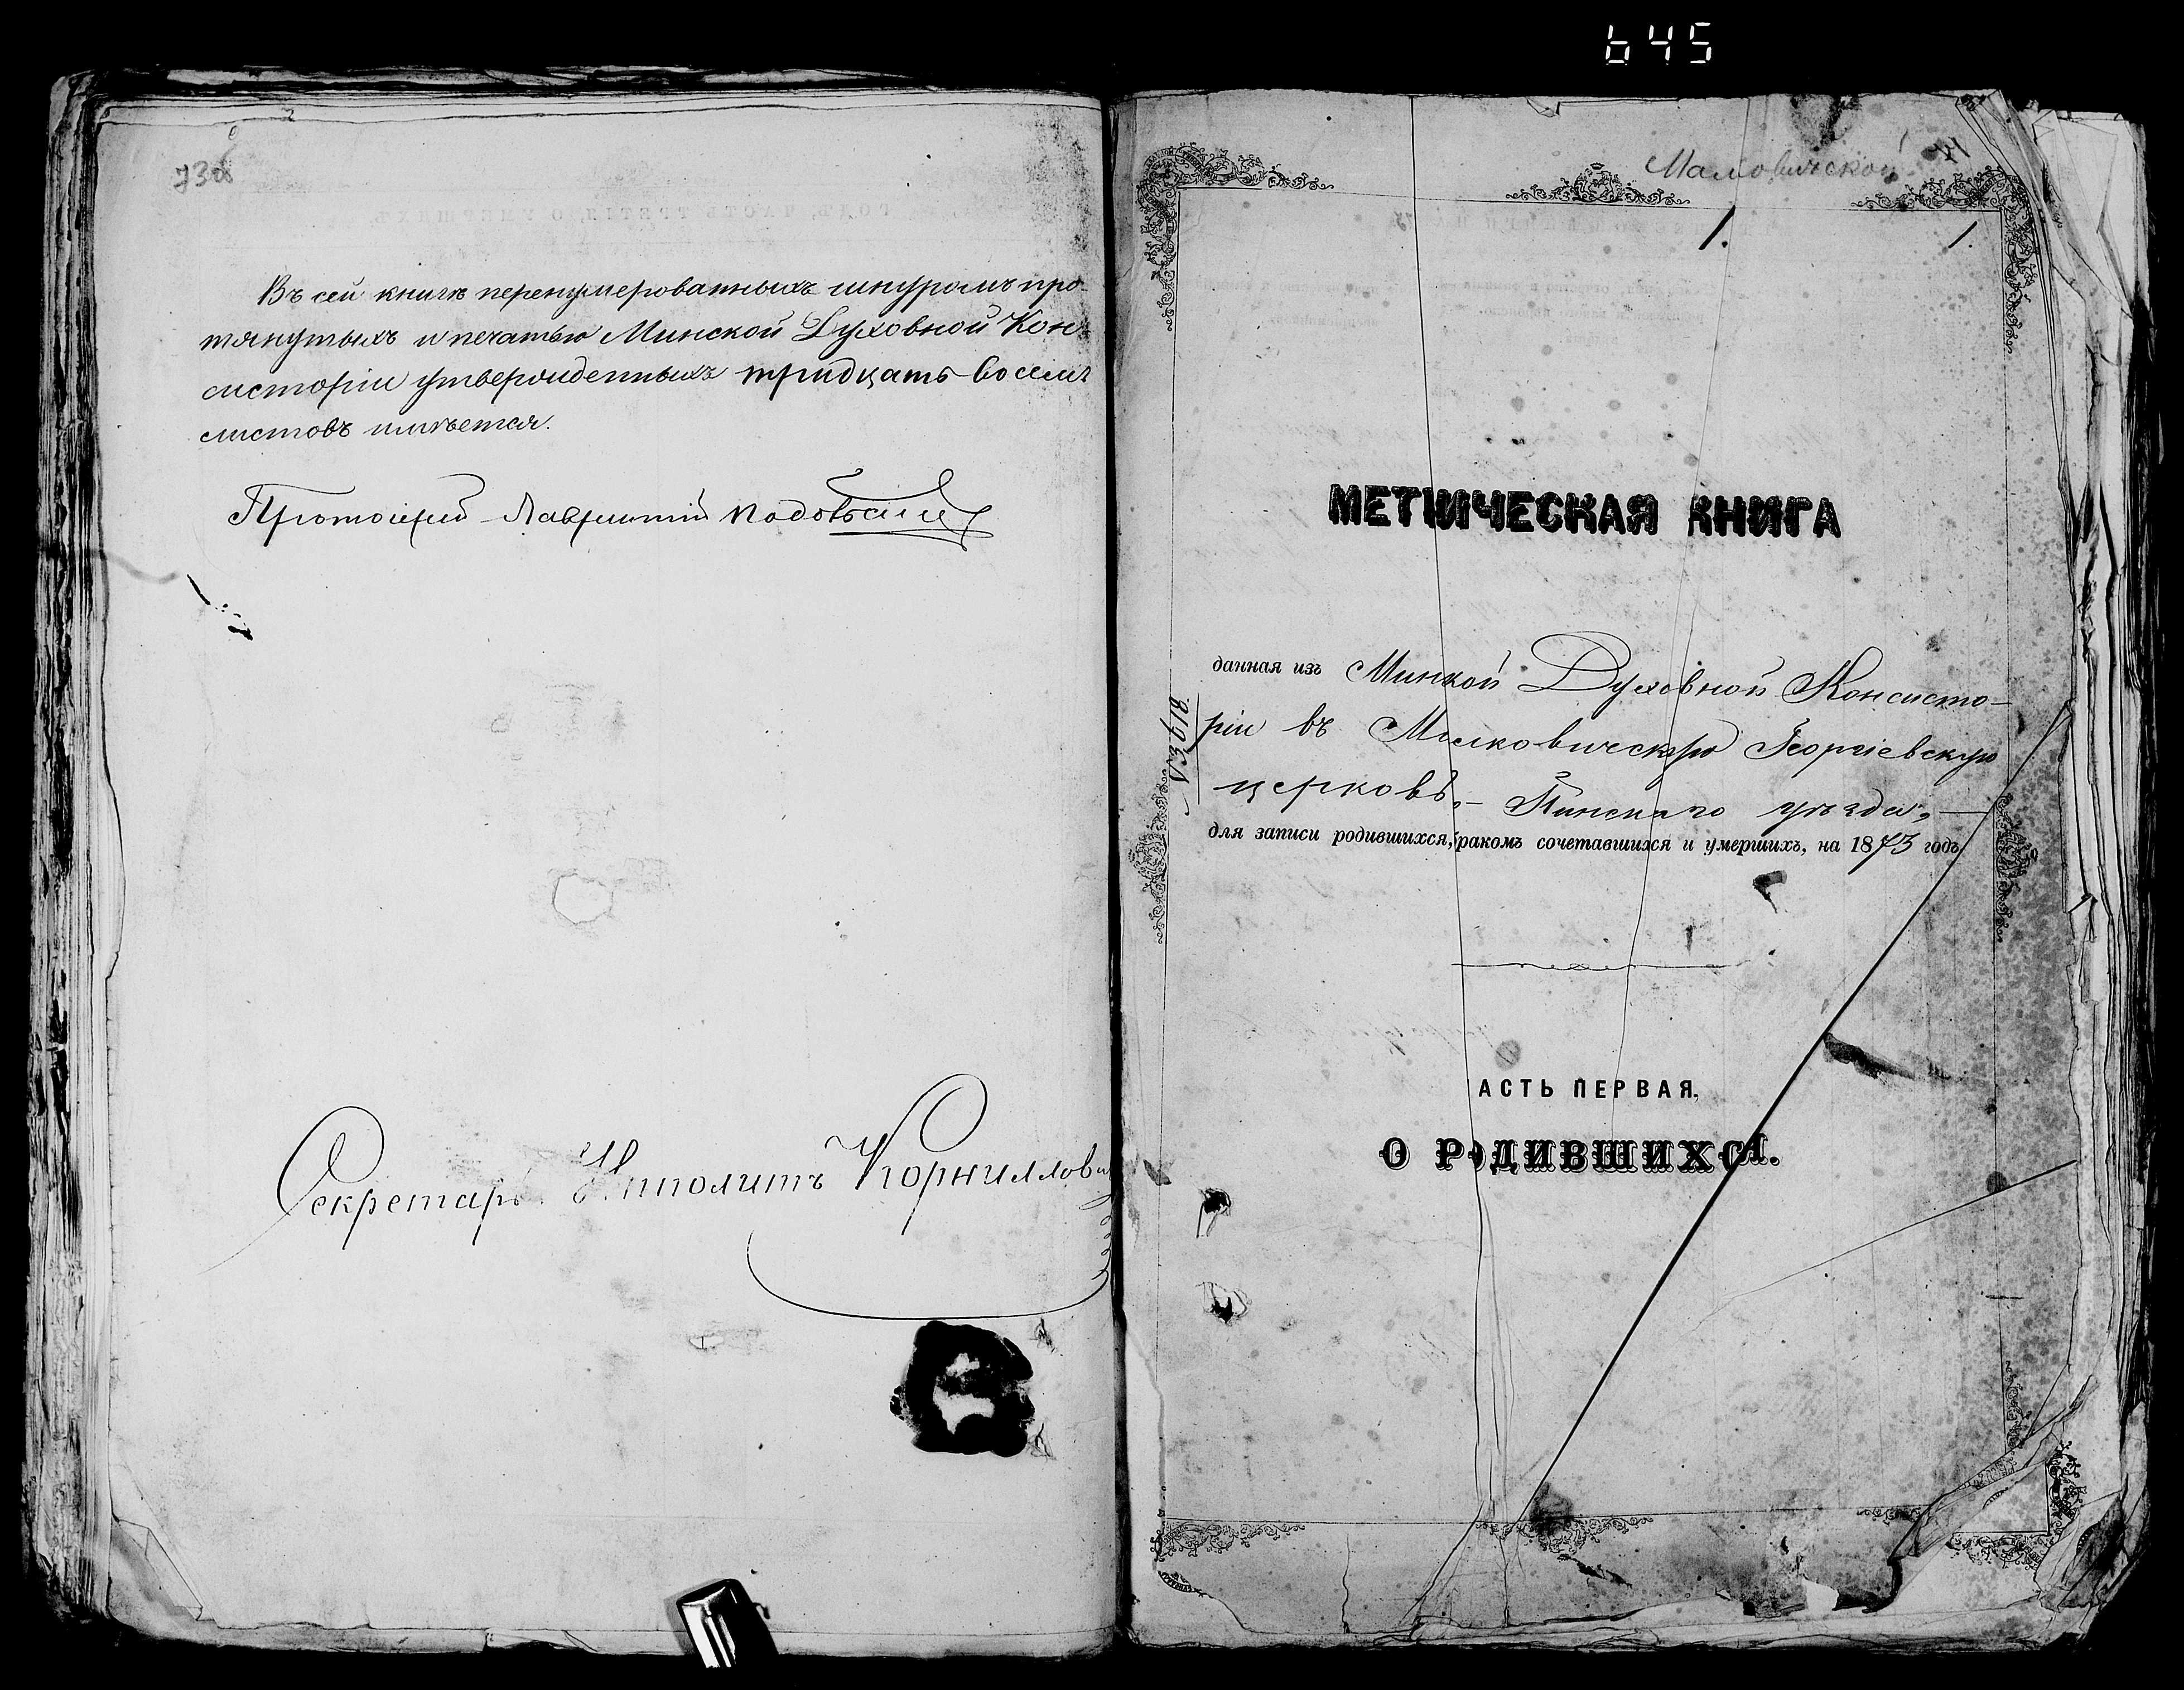 645
738
Въ сей книгѣ перенумерованныхъ шнуромъ про-
тянутыхъ и печатью Минской Духовной Кон-
систоріи утвержденныхъ тридцать восемь
листовъ имѣется.
Протоіерей Лаврентій
Секретарь Ипполитъ Корнилови
1. 1.
МЕТРИЧЕСКАЯ КНИГА
данная изъ Минской Духовной Консисто-
ріи въ Малковичскую Георгіевскую
церковь, – Пинскаго уѣзда, –
для записи родившихся, бракомъ сочетавшихся и умершихъ, на 1873 годъ
АСТЬ ПЕРВАЯ.
О РОДИВШИХСЯ.